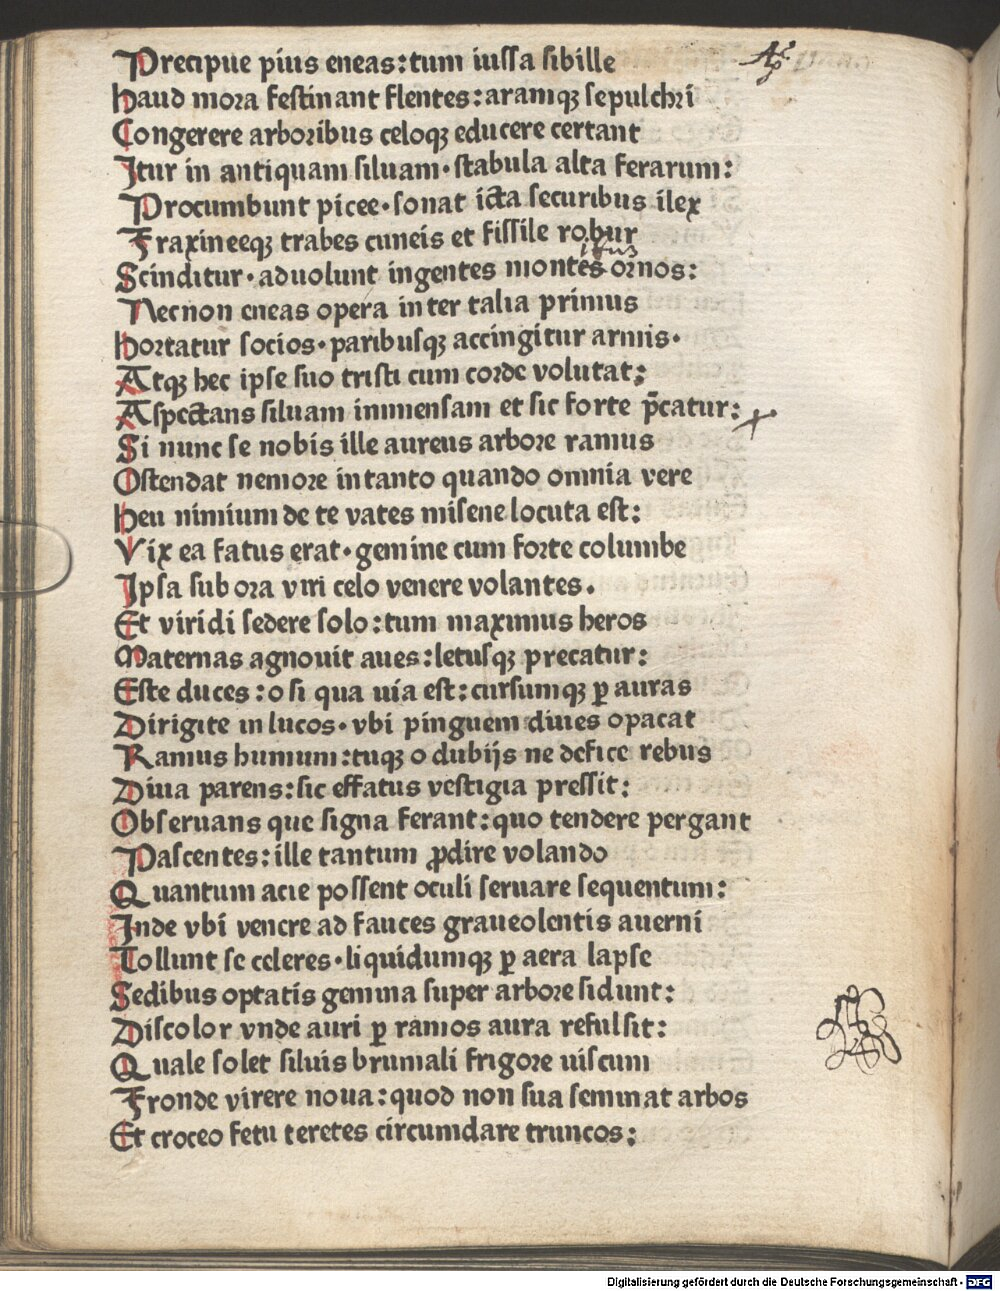 Precipue pius eneas: tum iussa sibille
haud mora festinant flentes: aramqꝫ sepulchri
Congerere arboribus celoqꝫ educere certant
Itur in antiquam siluam· stabula alta ferarum:
Procumbunt picee· sonat icta securibus ilex
Fraxineeqꝫ trabes cuneis et fissile robur
Scinditur· aduolunt ingentes montes ornos:
Necnon eneas opera inter talia primus
hortatur socios· paribusqꝫ accingitur armis·
Atqꝫ hec ipse suo tristi cum corde volutat:
Aspectans siluam immensam et sic forte p̄catur:
Si nunc se nobis ille aureus arbore ramus
Ostendat nemore in tanto quando omnia vere
heu nimium de te vates misene locuta est:
Vix ea fatus erat· gemine cum forte columbe
Ipsa sub ora viri celo venere volantes.
Et viridi sedere solo: tum maximus heros
Maternas agnouit aues: letusqꝫ precatur:
Este duces: o si qua uia est: cursumqꝫ ꝑ auras
Dirigite in lucos· vbi pinguem diues opacat
Ramus humum: tuqꝫ o dubijs ne defice rebus
Diua parens: sic effatus vestigia pressit:
Obseruans que signa ferant: quo tendere pergant
Pascentes: ille tantum ꝓdire volando
Quantum acie possent oculi seruare sequentum:
Inde vbi venere ad fauces graueolentis auerni
Tollunt se celeres· liquidumqꝫ ꝑ aera lapse
Sedibus optatis gemina super arbore sidunt:
Discolor vnde auri ꝑ ramos aura refulsit:
Quale solet siluis brumali frigore uiscum
Fronde virere noua: quod non sua seminat arbos
Et croceo fetu teretes circumdare truncos:
Digitalisierung gefördert durch die Deutsche Forschungsgemeinschaft - DFG